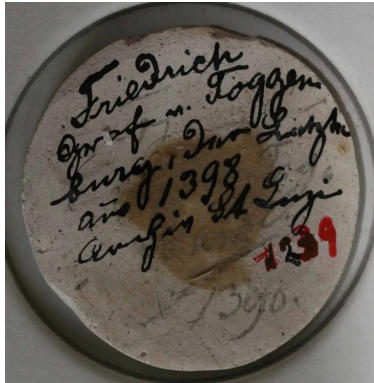 Friedrich
Graf v. Toggen
burg, der Letzte
aus 1398
Archiv St. Luzi
1239
1390.